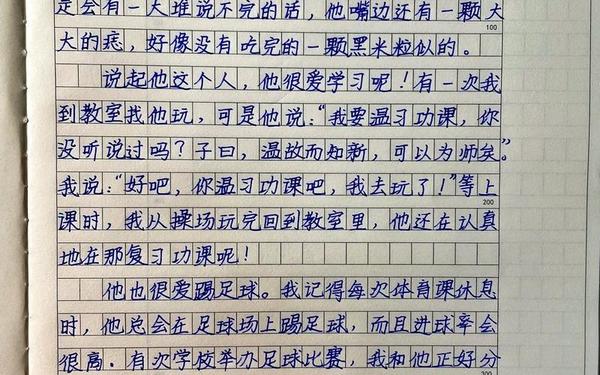 定会有一大堆说不完的话，他嘴边还有一颗大
大的痣，好像没有吃完的一颗黑米粒似的。
100
说起他这个人，他很爱学习呢！有一次我
到教室找他玩，可是他说：“我要温习功课，你
没听说过吗？子曰，温故而知新，可以为师矣。”
我说：“好吧，你温习功课吧，我去玩了！”等上
200
课时，我从操场玩完回到教室里，他还在认真
地在那复习功课呢！
他也很爱踢足球。我记得每次体育课休息
时，他总会在足球场上踢足球，而且进球率会
很高．有次学校举办足球比赛，我和他正好分
300